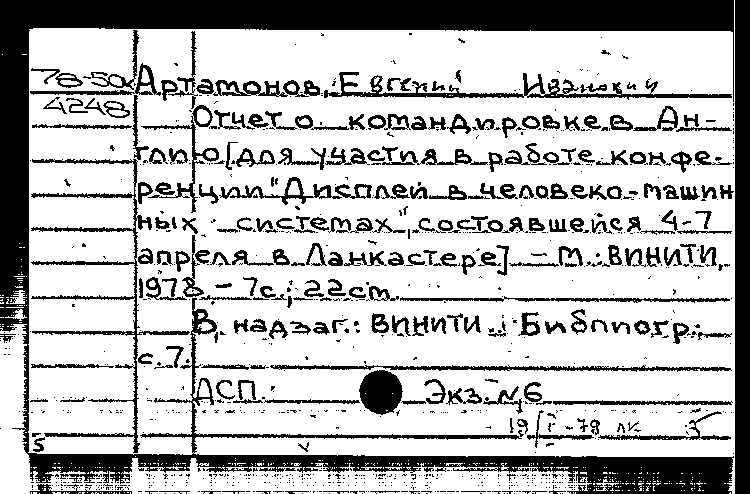 78-50к Артамонов, Евгений Иванович
4248 Отчет о командировке в Ан-
глию [для участия в работе конфе-
ренции "Дисплей в человеко-машин
ных системах", состоявшейся 4-7
апреля в Ланкастере] - М.: ВИНИТИ,
1978 - 7с.; 22cm.
В надзаг.: ВИНИТИ. Библиогр.:
с. 7.
ДСП. Экз. №6
19/I-79 лк
5